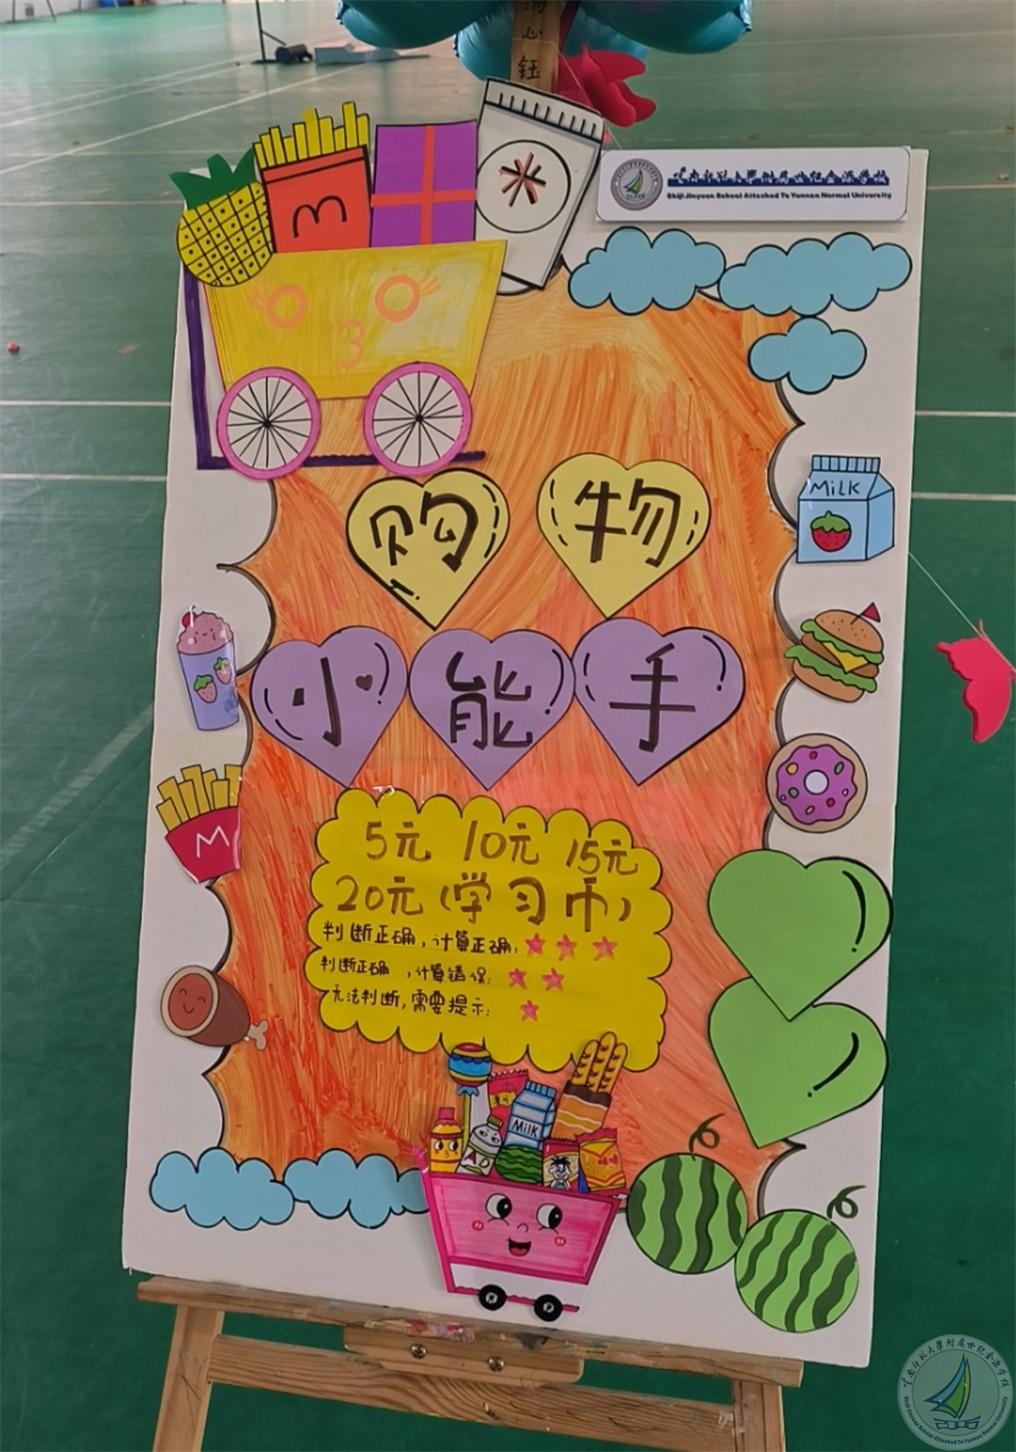 心钰
云南师范大学附属世纪金源学校
Shiji Jinyuan School Attached To Yunnan Normal University
M
3
购物
小能手
MiLK
M
5元 10元 15元
20元(学习币)
判断正确,计算正确:
判断正确 ,计算错误:
无法判断,需要提示:
MiLK
云南师范大学附属世纪金源学校
Shiji Jinyuan School Attached To Yunnan Normal University